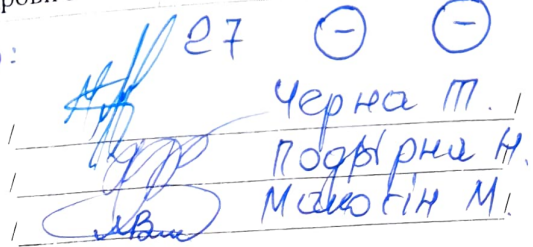 27 ⊖ ⊖
/ Черна Т. /
/ Подрірна Н.
/ Макогін М. /